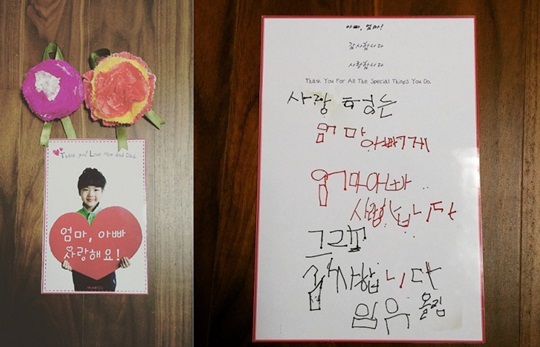 Thank you! Love Mom and Dad
엄마, 아빠
사랑해요!
아빠, 엄마!
감사합니다
사랑합니다
Thank You For All The Special Things You Do.
사랑
엄마
엄마아빠
사랑합니다
그리고
감사합니다
올림